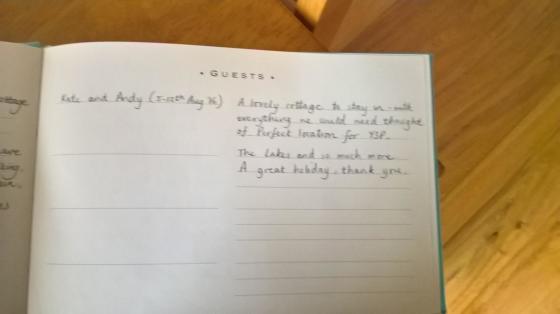 • GUESTS •
Kate and Andy (5-12th Aug 16)
A lovely cottage to stay in - with
everything we could need thought
of Perfect location for YSP.
The Lakes and so much more.
A great holiday, thank you.